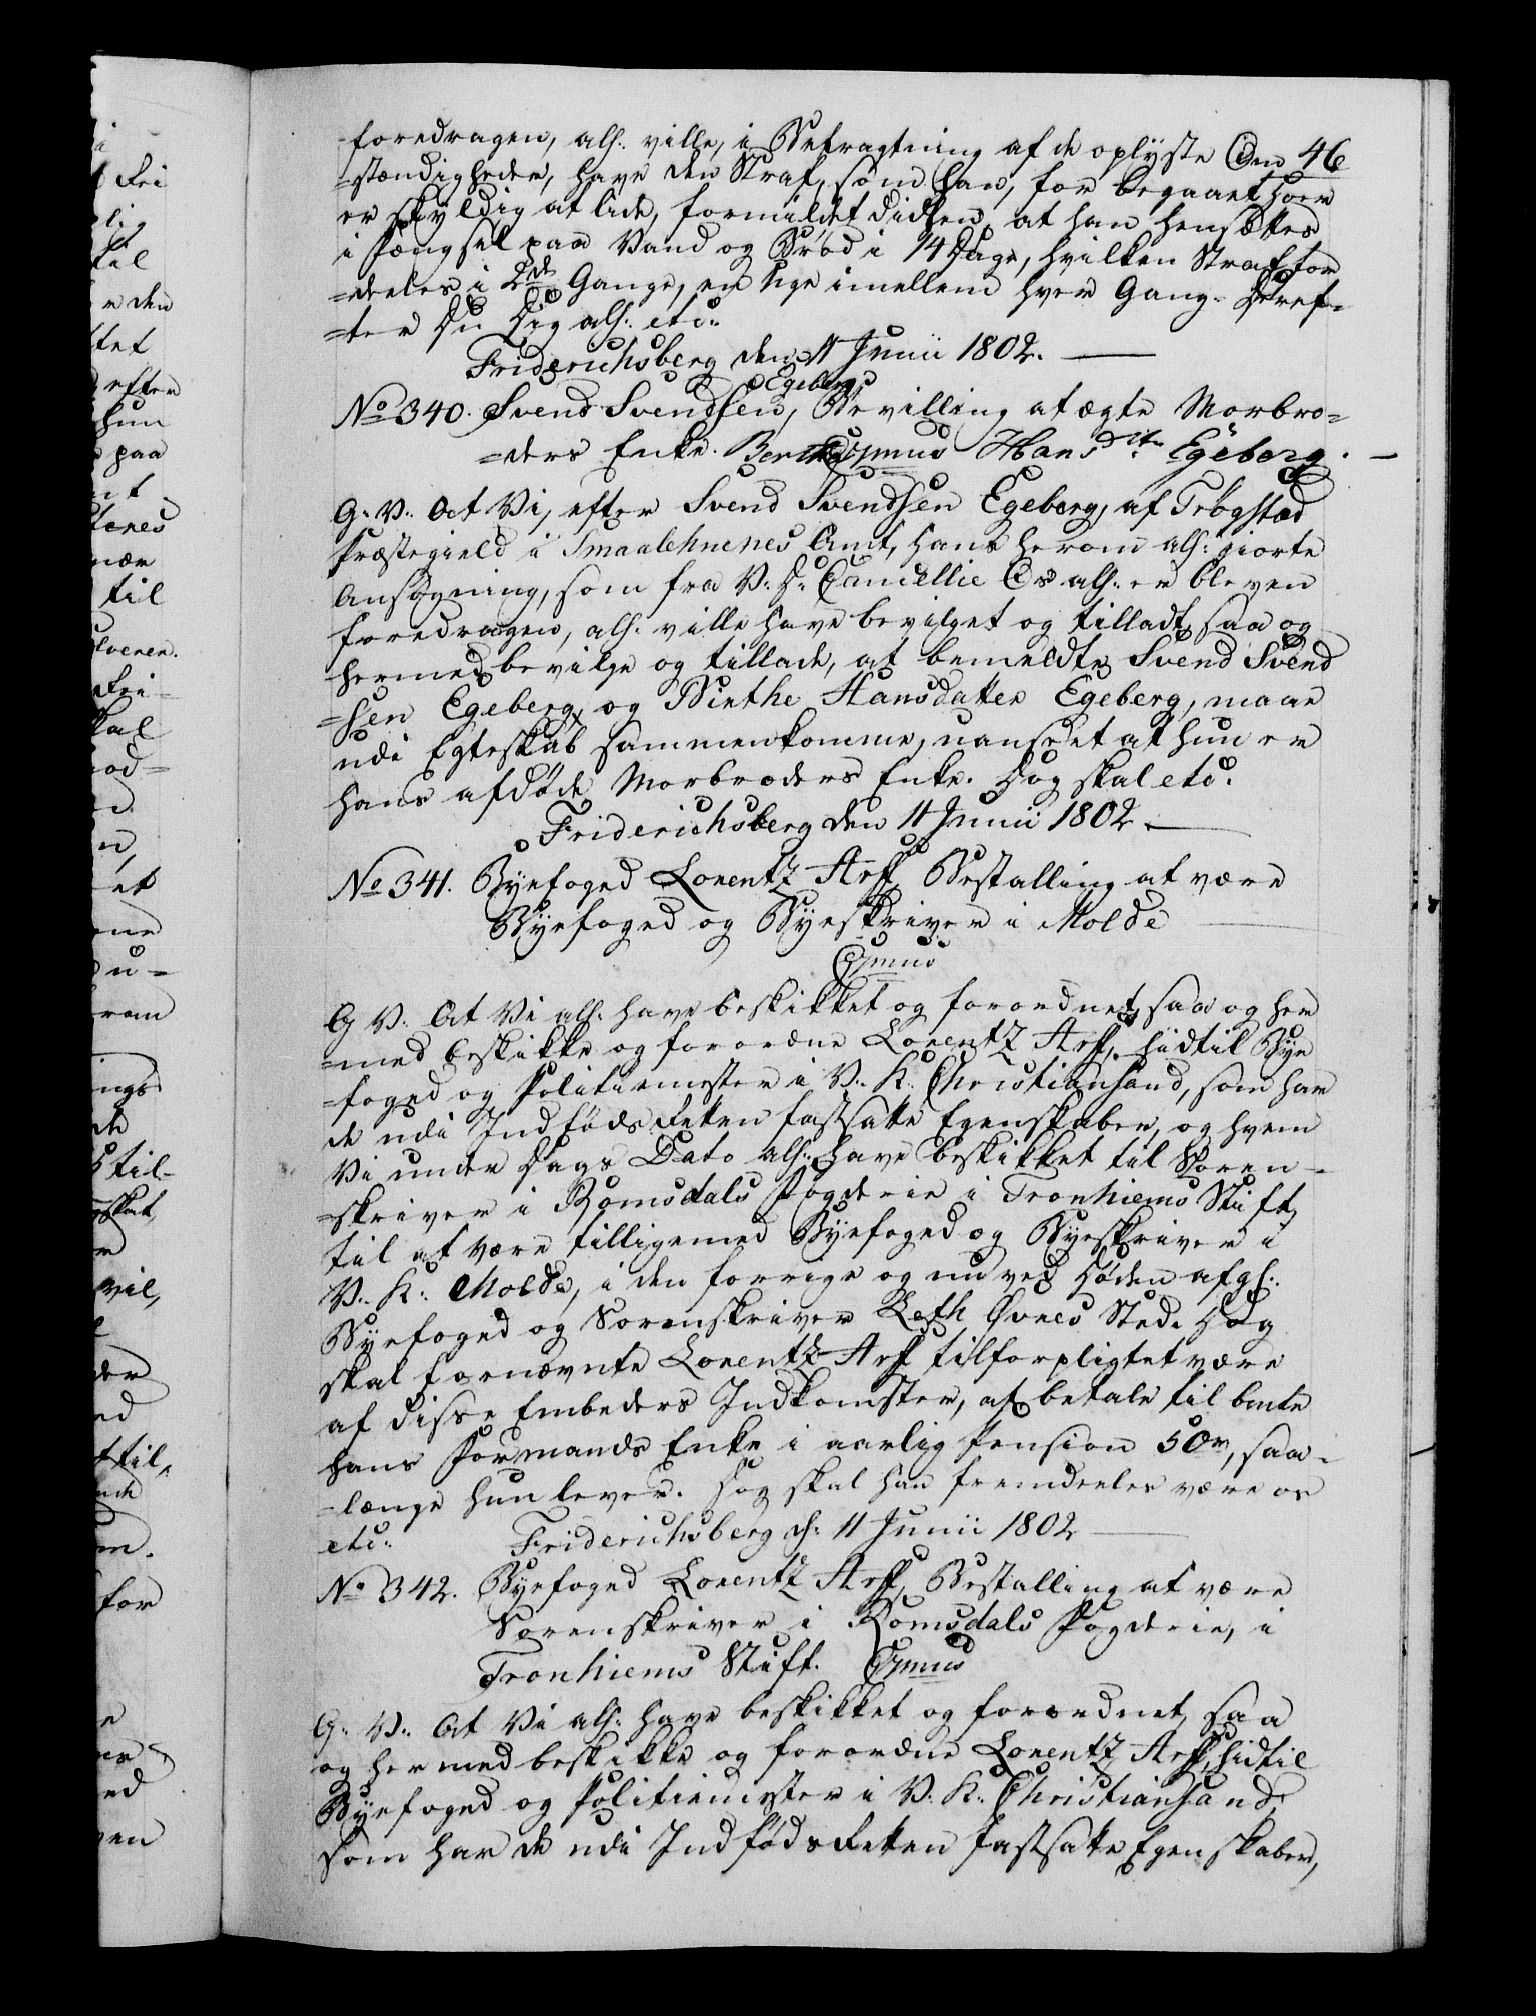 foredragen, als. ville, i Betragtning af de oplyste Om 46
=stændigheder, have den Straf, som han, for begaaet Hoer
er skyldig at lide, formildet didhen, at han hensættes
i Fængsel paa Vand og Brød i 14 Dage, hvilken Straf for
=deeles i 2de Gange, en Uge imellem hver Gang. Deref=
=ter Du Dig als. etc.
Friderichsberg den 11 Junii 1802.
Egeberg
No 340. Svend Svendsen, Bevilling at ægte Morbro=
=ders Enke. Hans Egeberg.
G. V. At Vi, efter Svend Svendsen Egeberg, af Trögstad
Præstegield i Smaalehnenes Amt, hans herom als. giorte
Ansøgning, som fra V. D. Cancellie Os als. er bleven
foredragen, als. ville have bevilget og tilladt, saa og
hermed bevilge og tillade, at bemeldte Svend Svend
=sen Egeberg, og Birthe Hansdatter Egeberg, maae
udi Egteskab sammenkomme, uanseet at hun er
hans afdøde Morbroders Enke. Dog skal etc.
Friderichsberg den 11 Junii 1802
No 341. Byefoged Lorentz Arff, Bestalling at være
Byefoged og Byeskriver i Molde
G V. At Vi als. have beskikket og forordnet, saa og her
=med beskikke og forordne Lorentz Arff, hidtil Bye
=foged og Politiemester i V. K. Christiansand, som har
de udi Indføds Retten fastsatte Egenskaber, og hvem
Vi under Dags Dato als. have beskikket til Soren=
=skriver i Romsdals Fogderie i Tronhiems Stift,
til at være tilligemed Byefoged og Byeskriver i
V. K. Molde, i den forrige og nu ved Døden afg.
Byefoged og Sorenskriver Leth Øvres Sted. Dog
skal fornævnte Lorentz Arff tilforpligtet være
af disse Embeders Indkomster, at betale til bmte
hans Formands Enke i aarlig Pension 50 r, saa=
=længe hun lever. Dog skal han fremdeeles være os
etc. Friderichsberg d. 11 Junii 1802
No 342. Byefoged Lorentz Arff, Bestalling at være
Sorenskriver i Romsdals Fogderie, i
Tronhiems Stift.
G. V. At Vi als. have beskikket og forordnet, saa
og hermed beskikke og forordne Lorentz Arff, hidtil
Byefoged og Politiemester i V. K. Christiansand,
som har de udi Indføds Retten fastsatte Egenskaber,